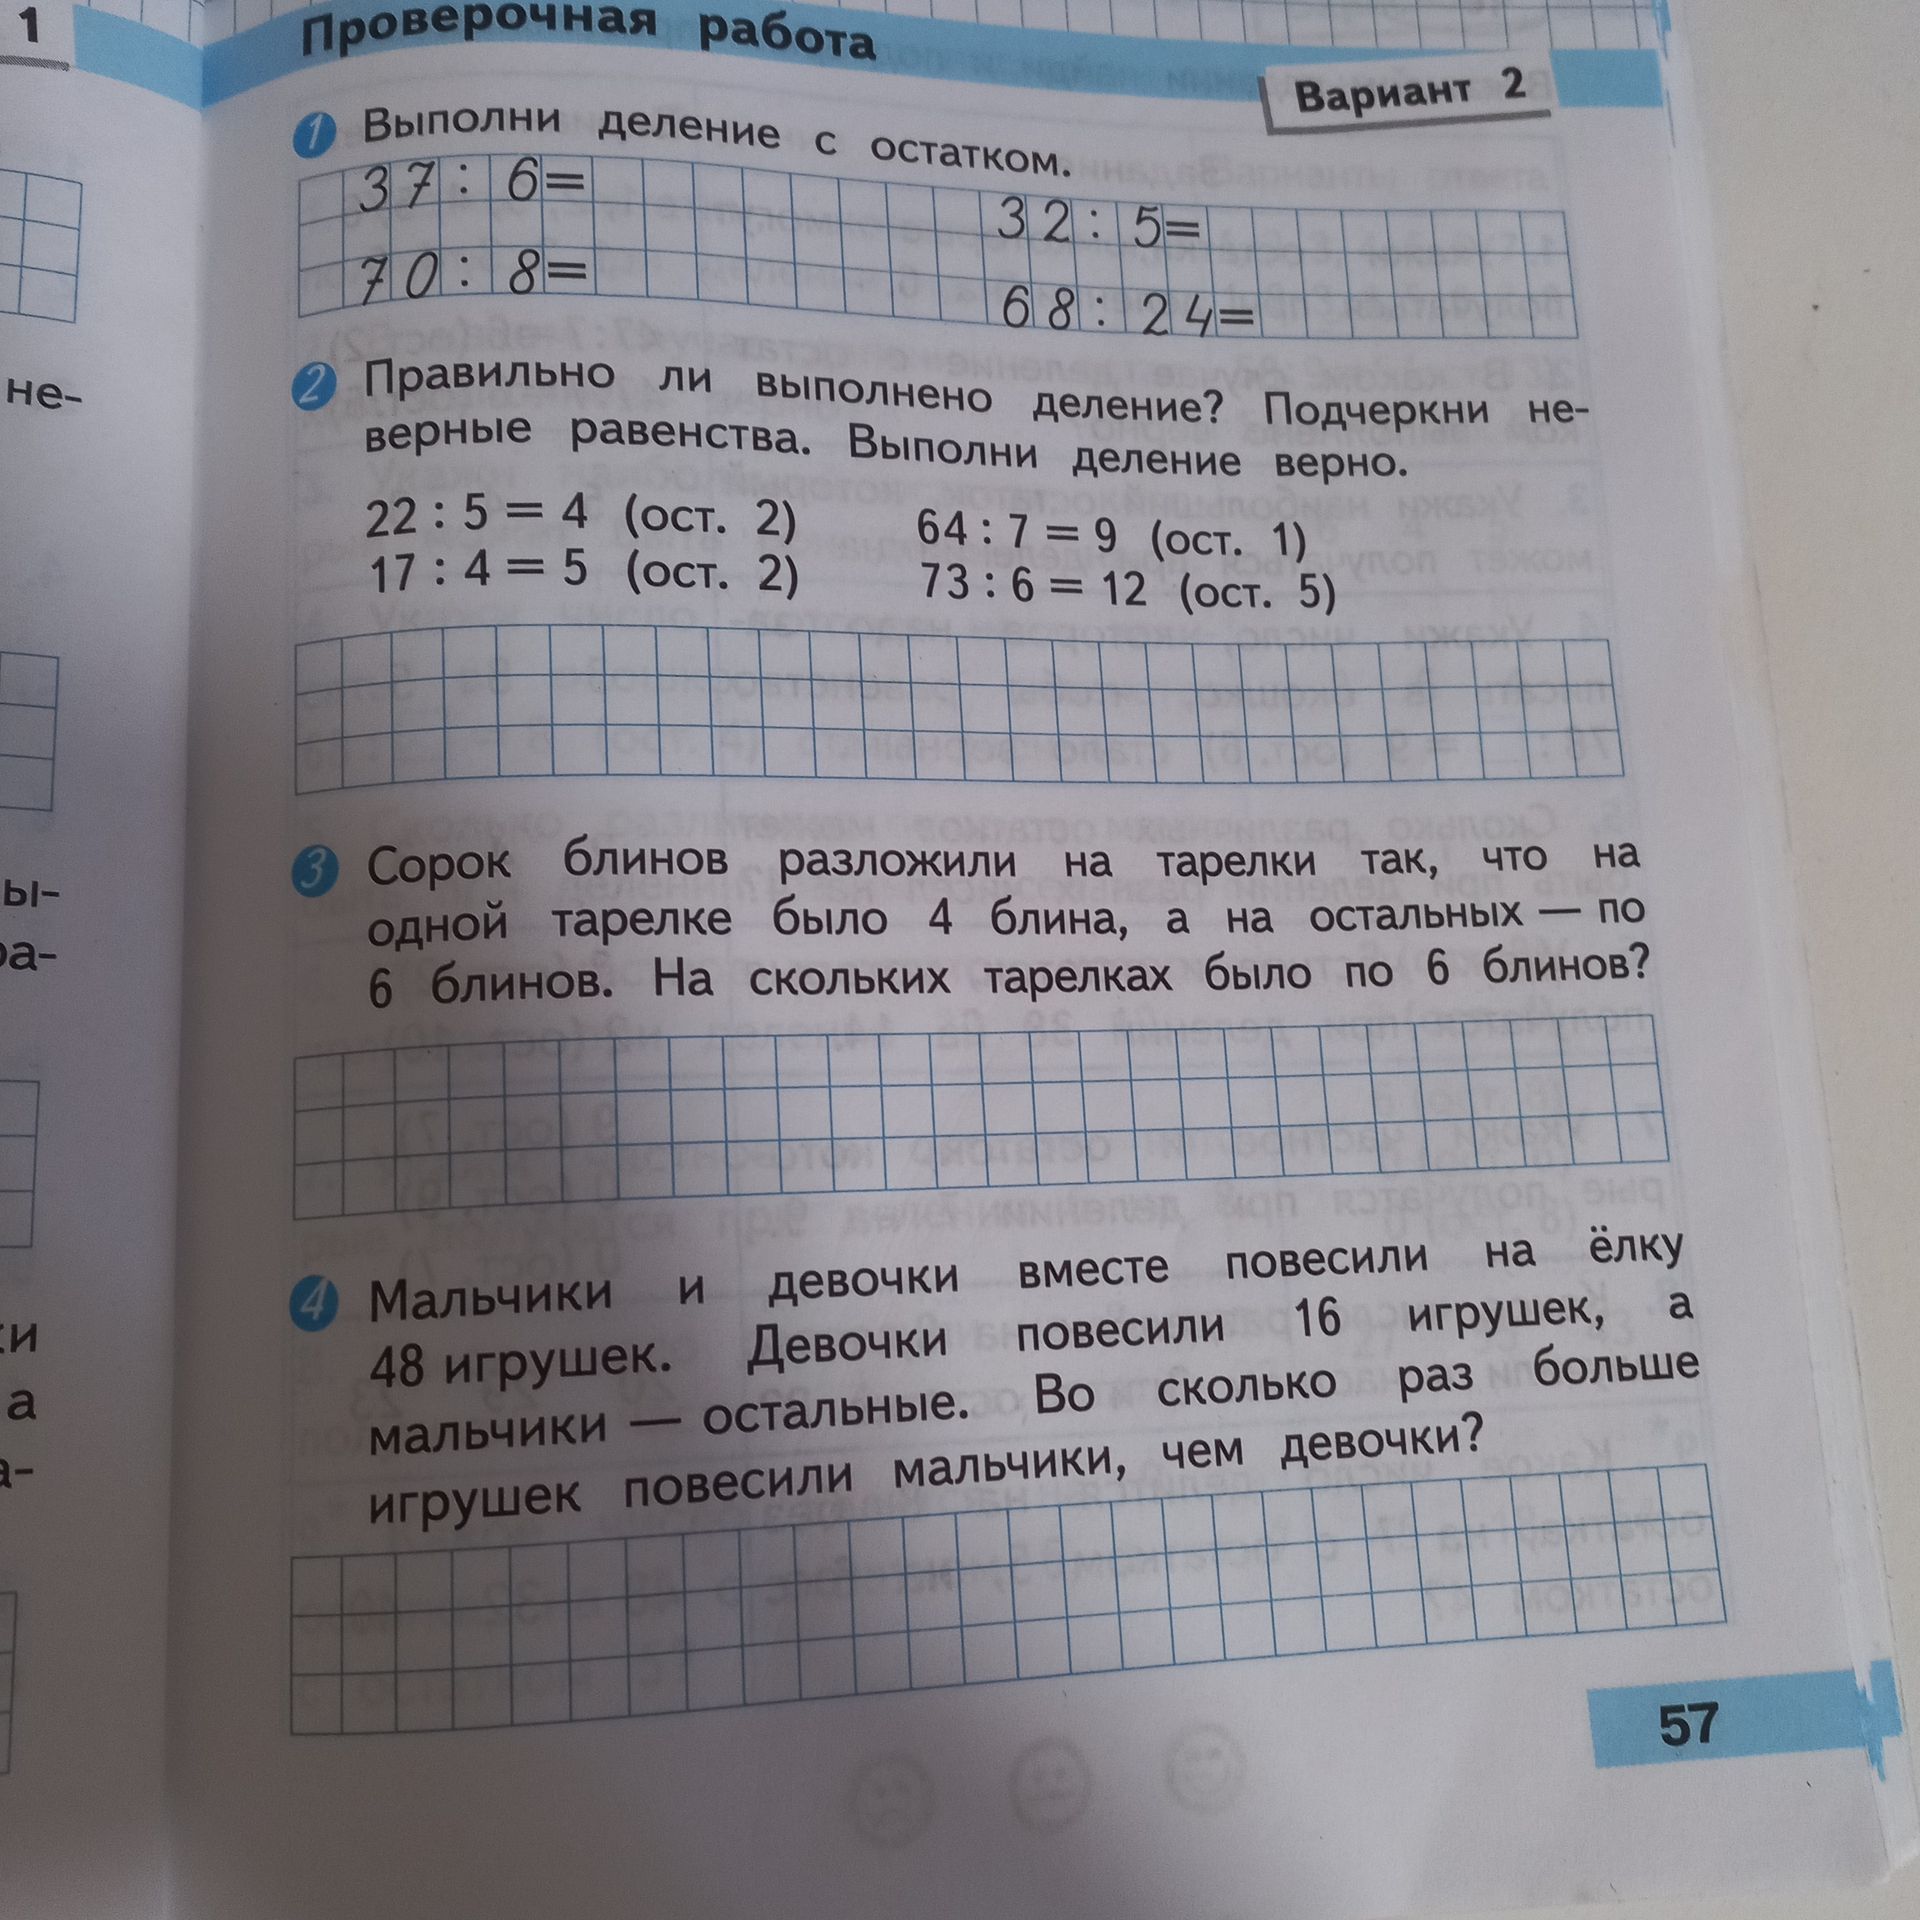 1
Проверочная работа
Вариант 2
1 Выполни деление с остатком.
37 : 6 =
32 : 5 =
70 : 8 =
68 : 24 =
2 Правильно ли выполнено деление? Подчеркни не-
верные равенства. Выполни деление верно.
22 : 5 = 4 (ост. 2)
64 : 7 = 9 (ост. 1)
17 : 4 = 5 (ост. 2)
73 : 6 = 12 (ост. 5)
3 Сорок блинов разложили на тарелки так, что на
одной тарелке было 4 блина, а на остальных — по
6 блинов. На скольких тарелках было по 6 блинов?
4 Мальчики и девочки вместе повесили на ёлку
48 игрушек. Девочки повесили 16 игрушек, а
мальчики — остальные. Во сколько раз больше
игрушек повесили мальчики, чем девочки?
57
не-
ы-
ра-
и
а
а-